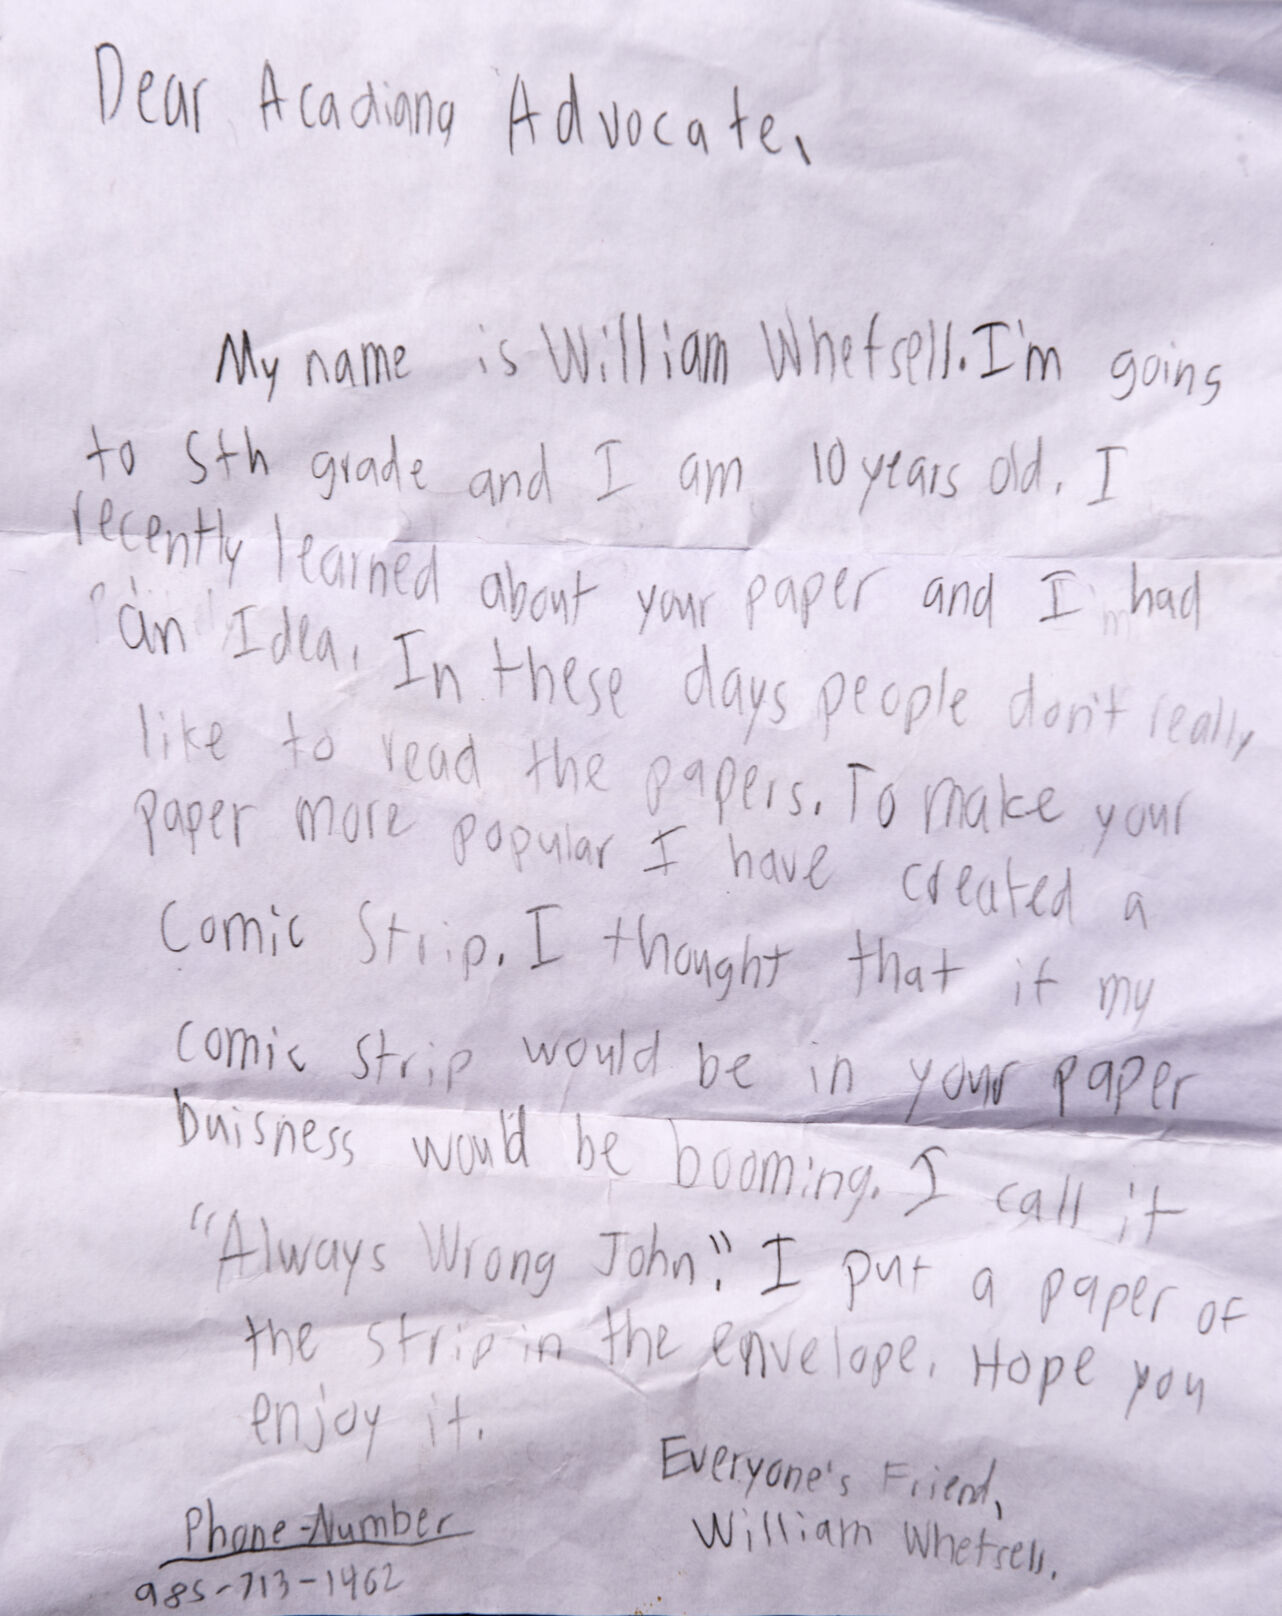 Dear Acadiana Advocate,
My name is William Whetsell. I'm going
to 5th grade and I am 10 years old. I
recently learned about your paper and I had
an Idea. In these days people don't really
like to read the papers. To make your
paper more popular I have created a
Comic Strip. I thought that if my
comic strip would be in your paper
buisness would be booming. I call it
"Always Wrong John". I put a paper of
the strip in the envelope. Hope you
enjoy it.
Everyone's Friend,
William Whetsell.
Phone-Number
985-713-1462